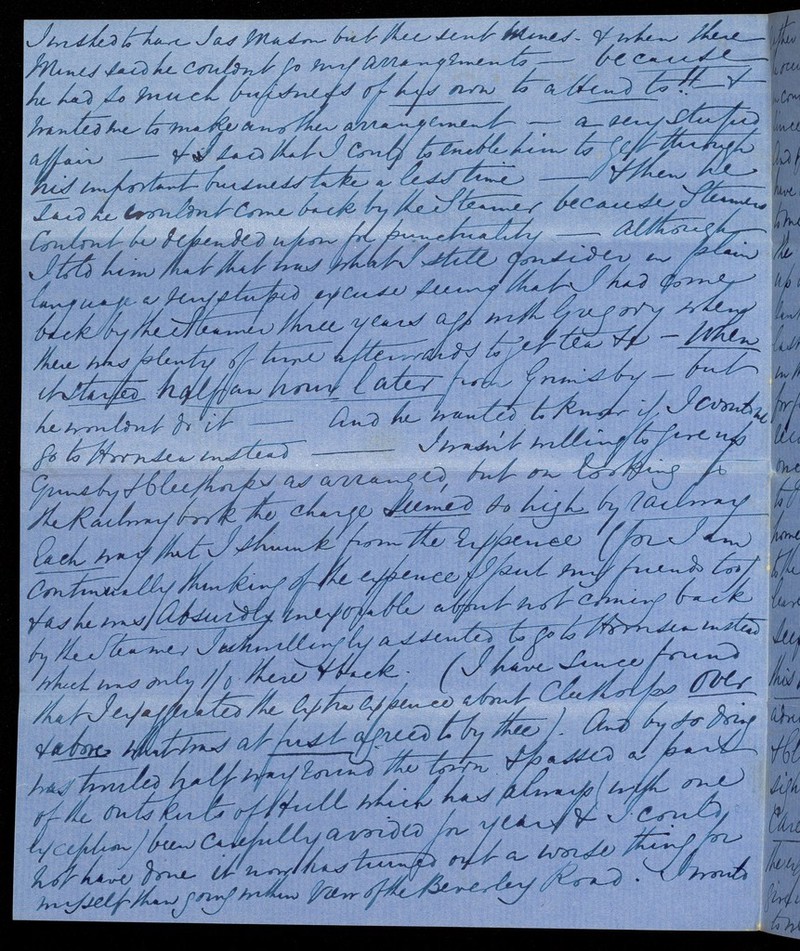 I wished to have Jas Mason but thee sent Mines - & when there
Mines said he couldnt go my arrangements — because
he had so much buisness of his own to attend to!! — &
wanted me to make another arrangement — a very stupid
affair — & said that I could to enable him to get through
his important buisness take a less time — & then he
said he wouldnt come back by the Steamer because Steamers
couldnt be depended upon for punctuality — although
I told him that that was what I still consider in plain
language a very stupid excuse seeing that I had come
back by the Steamer three years ago with Gregory when
there was plenty of time afterwards to get tea &c — when
it started half an hour later from Grimsby — but
he wouldnt do it — And he wanted to know if I couldnt
go to Hornsea instead — I wasn't willing to give up
Grimsby & Cleethorpes as arranged, but on looking in
the Railway book the charge seemed so high by railway
Each way that I shrunk from the Expence (for I am
continually thinking of the expence I put my friends too)
& as he was Absurdly inexorable about not coming back
by the Steamer I unwillingly assented to go to Hornsea instead
which was only 1/0 there & back. (I have since found
that I exaggerated the extra expence about Cleethorpes over
& above what was at first agreed to by thee). And by so doing
was twirled half way round the town & passed a part
of the outskirts of Hull which has always (with one
exception) been carefully avoided for years & I could
not have done it now has turned out a worse thing for
myself than going within view of the Beverley Road. I would